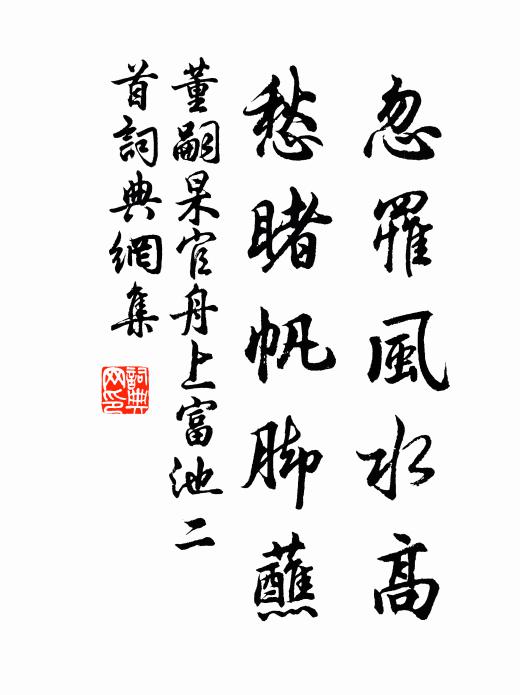 忽罹風水高
愁睹帆脚蘸
董嗣杲官舟上富池二
首詞典網集
詞典网印